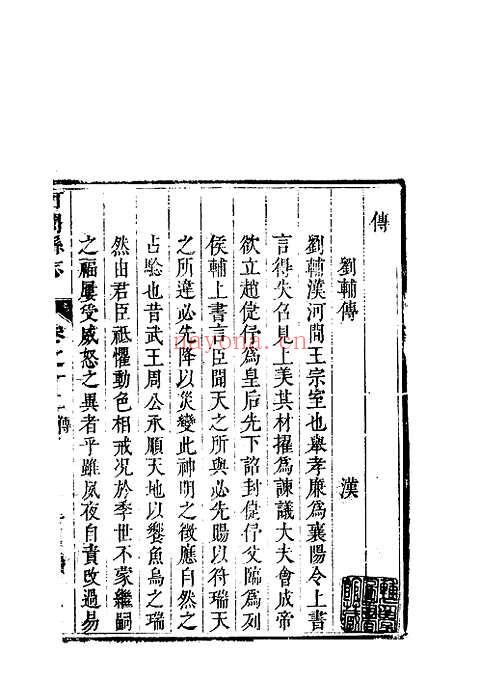 傳
劉輔傳 漢
劉輔漢河間王宗室也舉孝廉爲襄陽令上書
言得失召見上美其材擢爲諫議大夫會成帝
欲立趙倢伃爲皇后先下詔封倢伃父臨爲列
侯輔上書言臣聞天之所與必先賜以符瑞天
之所違必先降以災變此神明之徵應自然之
占驗也昔武王周公承順天地以饗魚鳥之瑞
然由君臣祗懼動色相戒况於季世不蒙繼嗣
之福屢受威怒之異者乎雖夙夜自責改過易
河間縣志
nayona.cn